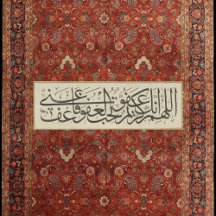 اللهم إنك عفو تحب العفو فاعف عني